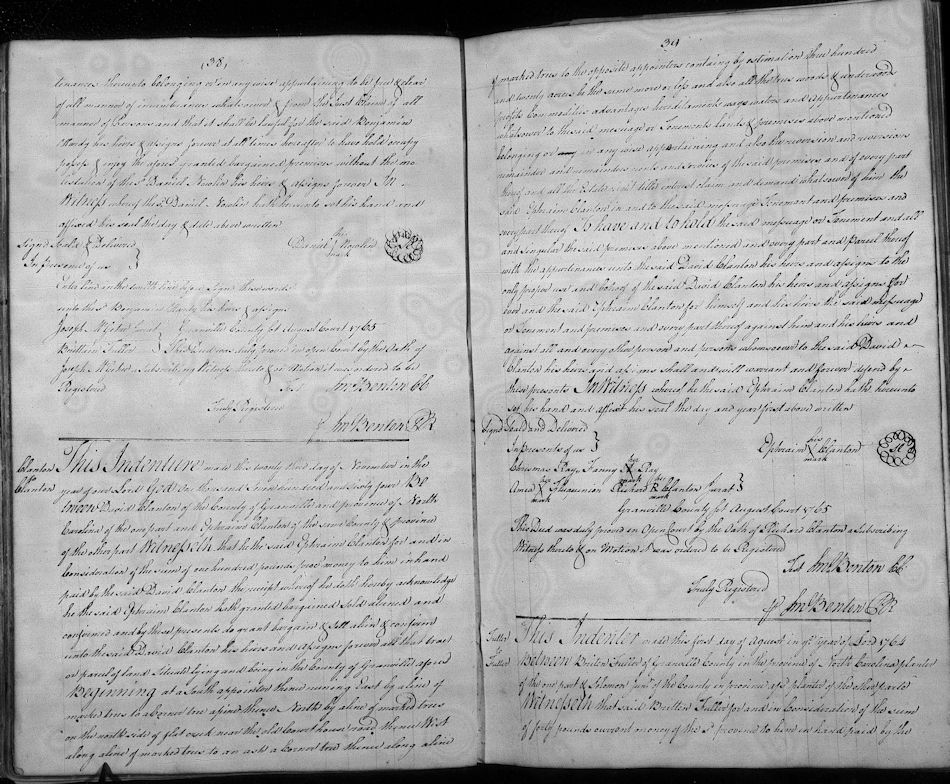 (38)
tenances thereunto belonging or in any wise appertaining to be free & clear
of all manner of incumberances whatsoever & from the Just Claim of all
manner of Persons and that it shall be lawful for the said Benjamin
Hardy his heirs & assigns forever at all times hereafter to have hold occupy
possess & enjoy the afores granted bargained premises without the mo
lestation of the sd Daniel his heirs & assigns forever In
Witness whereof the sd Daniel hath hereunto set his hand and
affixed his seal the day & date above written
Signd Seald & Delivered
In presence of us
Daniel his mark
Enterline in the tenth line before Sign the words
unto the sd Benjamin Hardy his heirs & assigns
Joseph Jurat Granvill County fst August Court 1765
Brittain Fuller This Deed was duly proved in open Court by the Oath of
Joseph a Subscribing Witness thereto & on Motion it was ordered to be
Registered
Test Jno Benton CC
Truly Registered
Jno Benton C R
Clanton
to
Clanton
This Indenture made this twenty third day of November in the
year of our Lord God One thousand Seven hundred and Sixty four Be
tween David Clanton of the County of Granville and province of North
Carolina of the one part and Ephraim Clanton of the same County & province
of the other part Witnesseth that he the said Ephraim Clanton for and in
Consideration of the sum of one hundred pounds proc money to him in hand
paid by the said David Clanton the receipt whereof he doth hereby acknowledge
he the said Ephraim Clanton hath granted bargained Sold aliened and
confirmed and by these presents do grant bargain & Sell alien & confirm
unto the said David Clanton his heirs and assigns forever all that tract
or parcel of land Situate lying and being in the County of Granvill afored
Beginning at a South appointer thence runing East by a line of
marked trees to a Corner tree a pine thence North by a line of marked trees
on the north side of flat creek near the old Court house road thence West
along a line of marked trees to an ash a Corner tree thence along a line
39
of marked trees to the opposite appointers containg by estimation three hundred
and twenty acres be the same more or less and also all the trees woods & underwoods
profits Commodities advantages hereditaments ways waters and appurtenances
whatsover to the said messuage or Tenements lands & premises above mentioned
belonging or in any wise appertaining and also the reversion and reversions
remainder and remainders rents and services of the said premises and of every part
thereof and all the Estate right title interest claim and demand whatsoever of him the
said Ephraim Clanton in and to the said messuage Tenement and premises and
every part thereof To have and to hold the said messuage or Tenement and all
and singular the said premises above mentioned and every part and Parcel thereof
with the appurtenances unto the said David Clanton his heirs and assigns to the
only proper use and behoof of the said David Clanton his heirs and assigns for
ever and the said Ephraim Clanton for himself and his heirs the said messuage
or Tenement and premises and every part thereof against him and his heirs and
against all and every other person and persons whomsoever to the said David
Clanton his heirs and assigns shall and will warrant and forever defend by
these presents In Witness whereof he the said Ephraim Clanton ha the hereunto
set his hand and affixt his seal the day and year first above written
Signd Seald and Delivered
In presents of us
Ephraim his mark Clanton
Christmas Ray, Fanny her mark Ray
Amea her mark Richard his mark Clanton Jurat
Granvill County fst August Court 1765
This Deed was duly proved in Open Court by the Oath of Richard Clanton a Subscribing
Witness thereto & on Motion it was ordered to be Registered
Test Jno Benton CC
Truly Registered
Jno Benton C R
Fuller
to
Fuller
This Indenter made this first day of Agust in ye year of Lord 1764
Between Briten Fuller of Granvill County in the province of North Carolina planter
of the one part & Solomon junr of the County in province afsd planter of the other parte
Witnesseth that said Brittan Fuller for and in Consideration of the sum
of forty pounds current money of the sd province to him in hand paid by the